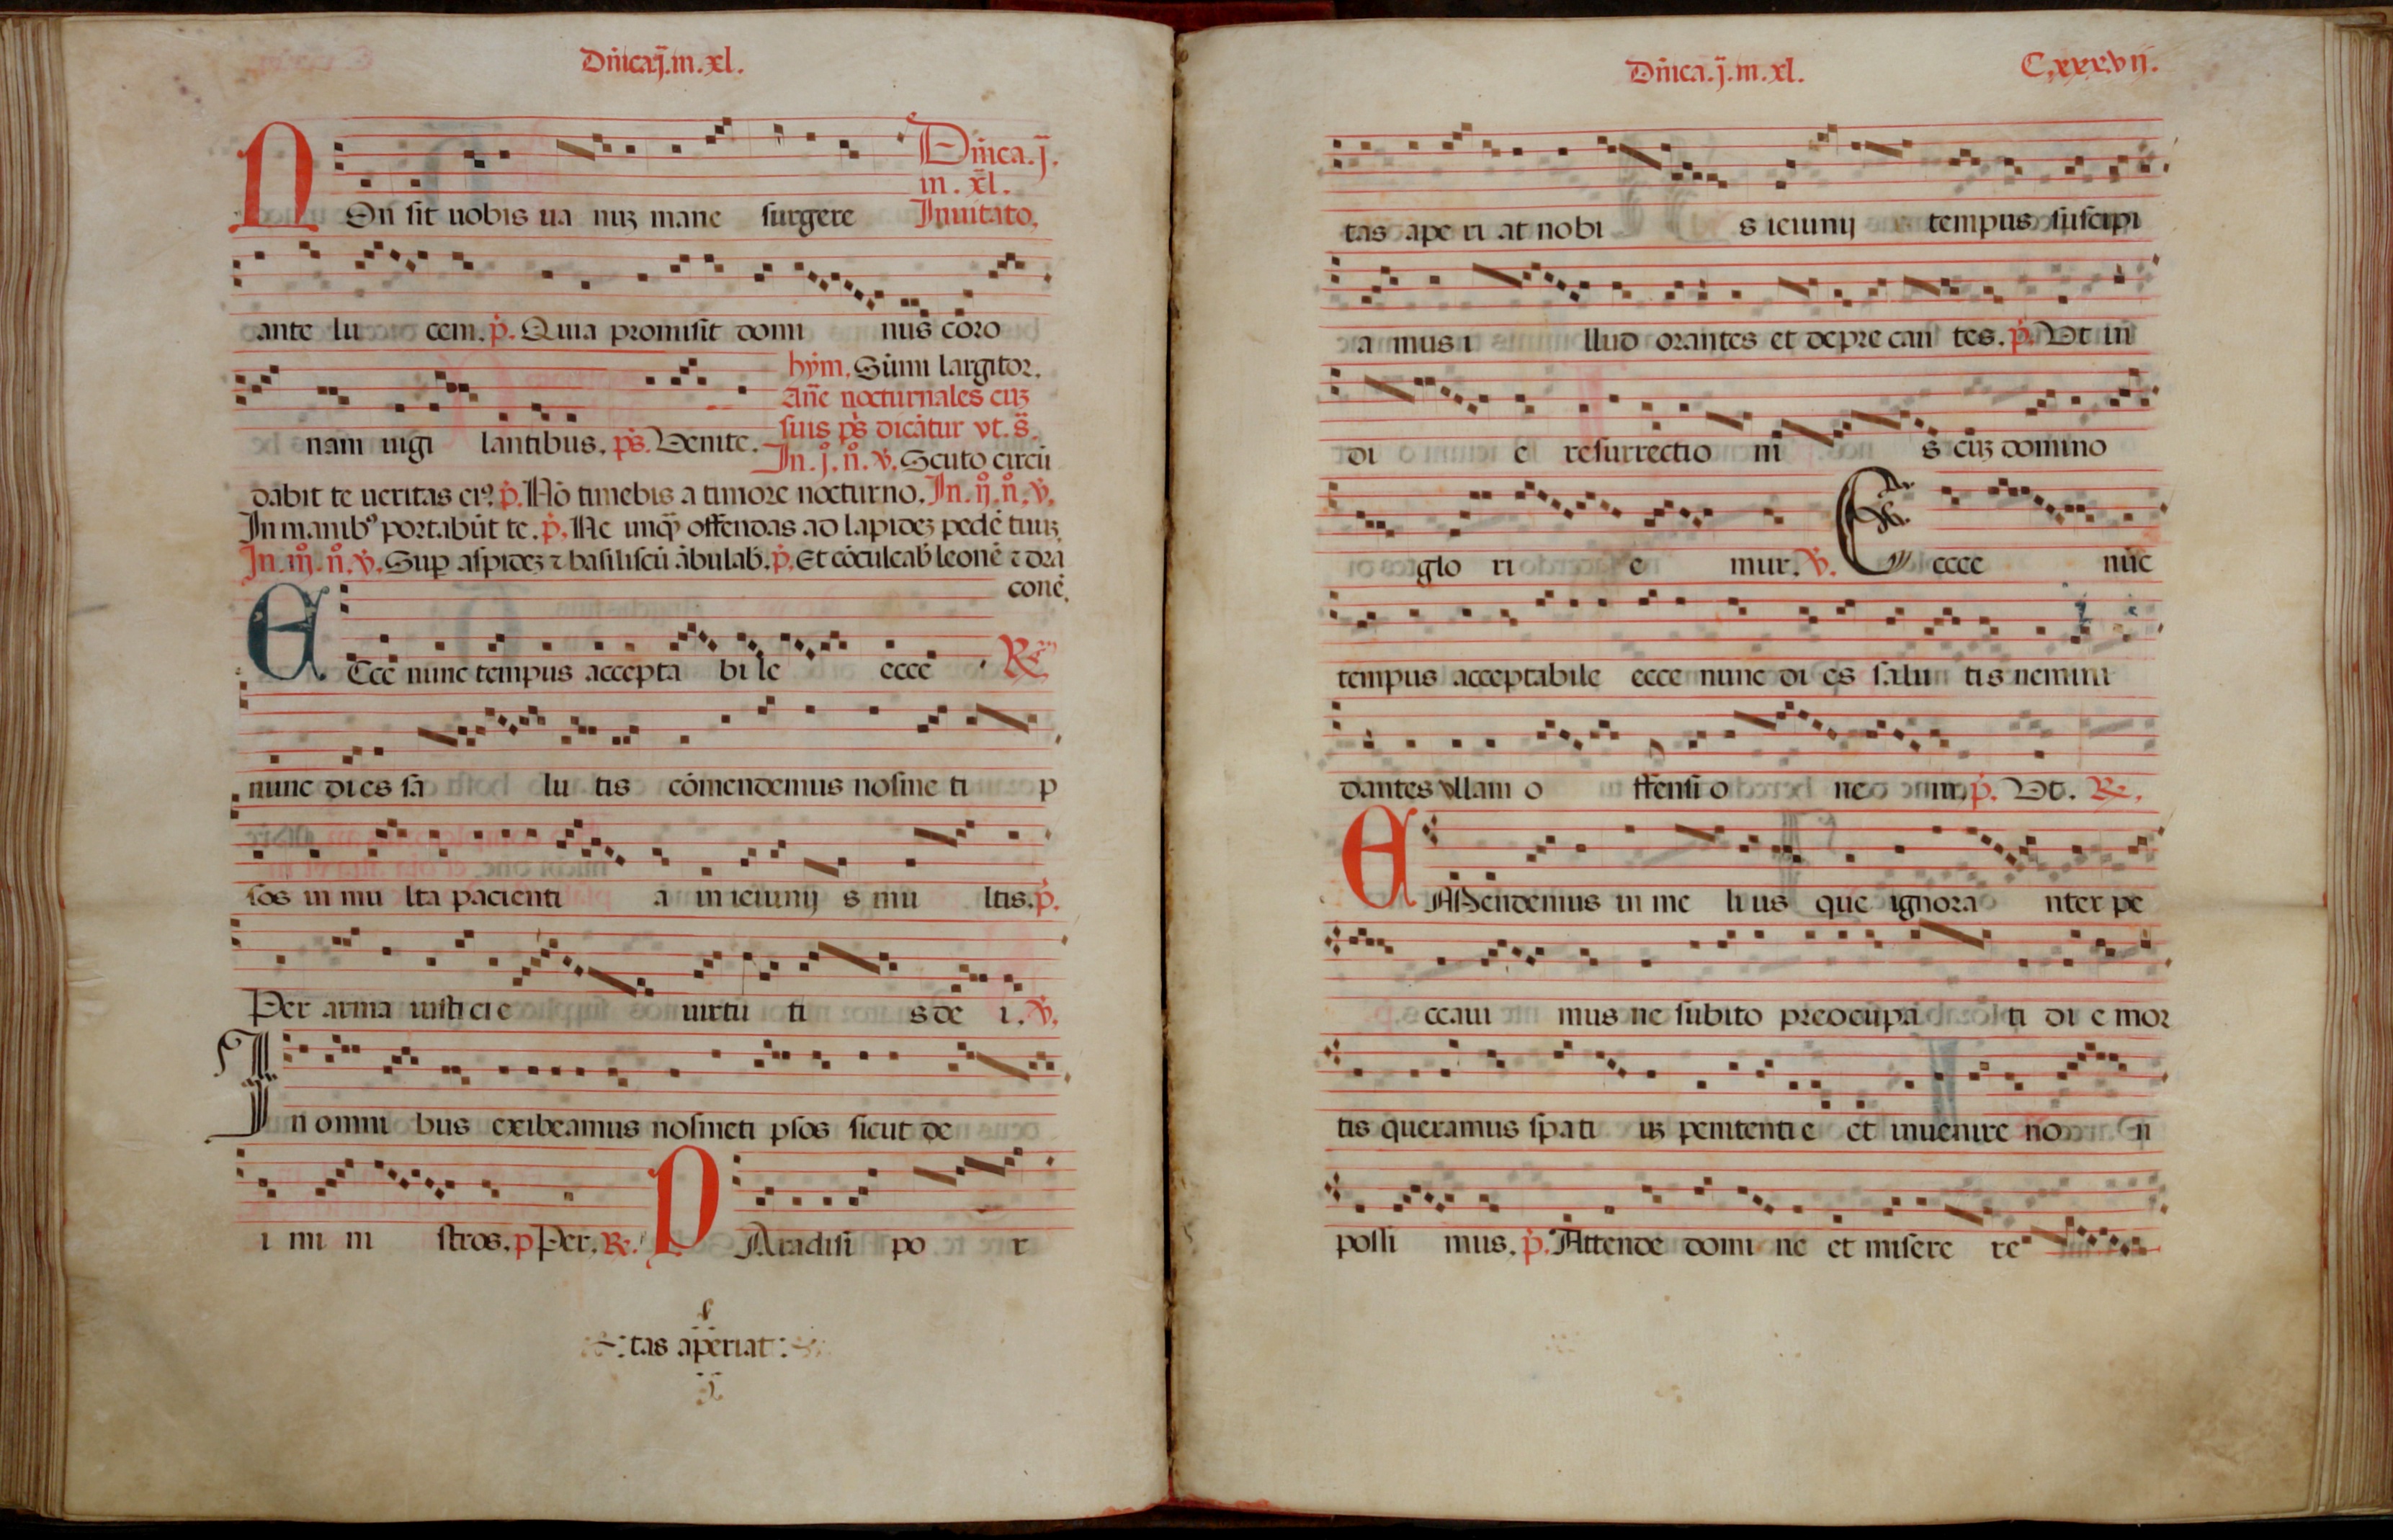 Dñica.j.m.xl.
Dñica.j.
m.xl.
NOn sit uobis ua nuꝫ mane surgere Inuitato.
ante lu cem. p̄. Quia promisit domi nus coro
hym. Sūmi largitor.
Añe nocturnales cuꝫ
suis ps̄ dicātur vt. s̄.
nam uigi lantibus. ps̄. Venite.
In. j. n̊. v̄. Scuto circū
dabit te ueritas eiꝰ. p̄. Nō timebis a timore nocturno. In. ij. n̊. v̄.
In manibꝰ portabūt te. p̄. Ne unqꝫ offendas ad lapideꝫ pedē tuuꝫ.
In. iij. n̊. v̄. Suꝑ aspideꝫ ⁊ basiliscū ābulab̄. p̄. Et cōculcab̄ leonē ⁊ dra
conē.
ECce nunc tempus accepta bi le ecce ℟.
nunc di es sa lu tis cōmendemus nosme ti p
sos in mu lta pacienti a in ieiunij s mu ltis. p̄.
Per arma iusti ci e uirtu ti s de i. v̄.
In omni bus exibeamus nosmeti psos sicut de
i mi ni stros. p Per. ℟. PAradisi po r
tas aperiat
Dñica.j.m.xl. C.xxx.vij.
tas ape ri at nobi s ieiunij tempus suscipi
a mus i llud orantes et depre can tes. p̄. Vt in
di e resurrectio ni s cuꝫ domino
glo ri e mur. v̄. Ecce nūc
tempus acceptabile ecce nunc di es salu tis nemini
dantes ullam o ffensi o ne m. p̄. Vt. ℟.
EMendemus in me li us que ignora nter pe
ccaui mus ne subito preocupa ti di e mor
tis queramus spati uꝫ penitenti e et inuenire no n
possi mus. p̄. Attende domi ne et misere re